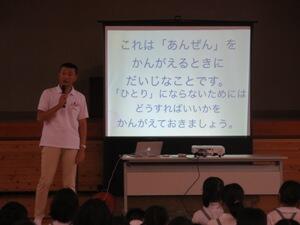 これは「あんぜん」を
かんがえるときに
だいじなことです。
「ひとり」にならないためには
どうすればいいかを
かんがえておきましょう。